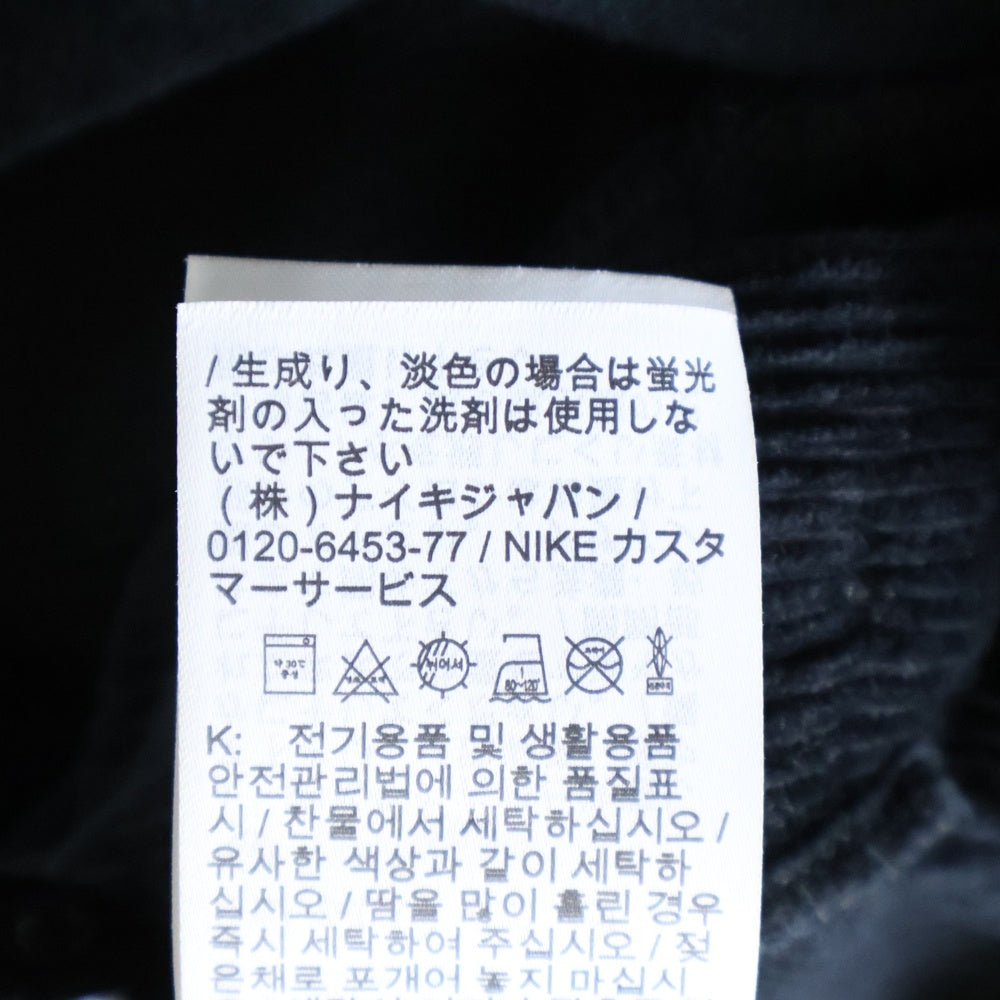 / 生成り、淡色の場合は蛍光
剤の入った洗剤は使用しな
いで下さい
(株)ナイキジャパン /
0120-6453-77 / NIKE カスタ
マーサービス
약 30℃ 중성
뉘어서
1 80~120°
K: 전기용품 및 생활용품
안전관리법에 의한 품질표
시 / 찬물에서 세탁하십시오 /
유사한 색상과 같이 세탁하
십시오 / 땀을 많이 흘린 경우
즉시 세탁하여 주십시오 / 젖
은채로 포개어 놓지 마십시